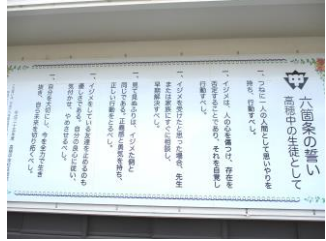 六箇条の誓い
高穂中の生徒として
一、つねに一人の人間として思いやりを
持ち、行動すべし。
一、イジメは、人の心を傷つけ、存在を
否定することであり、それを自覚し
行動すべし。
一、イジメを受けたと思った場合、先生
または家族にすぐに相談し、
早期解決すべし。
一、見て見ぬふりは、イジメた側と
同じである。正義感と勇気を持ち、
正しい行動をとるべし。
一、イジメをしている友達をとめるのも
優しさである。自分の良心に従い、
気付かせ、やめさせるべし。
一、自分を大切にし、今を全力で生き
抜き、自ら未来を切り拓くべし。